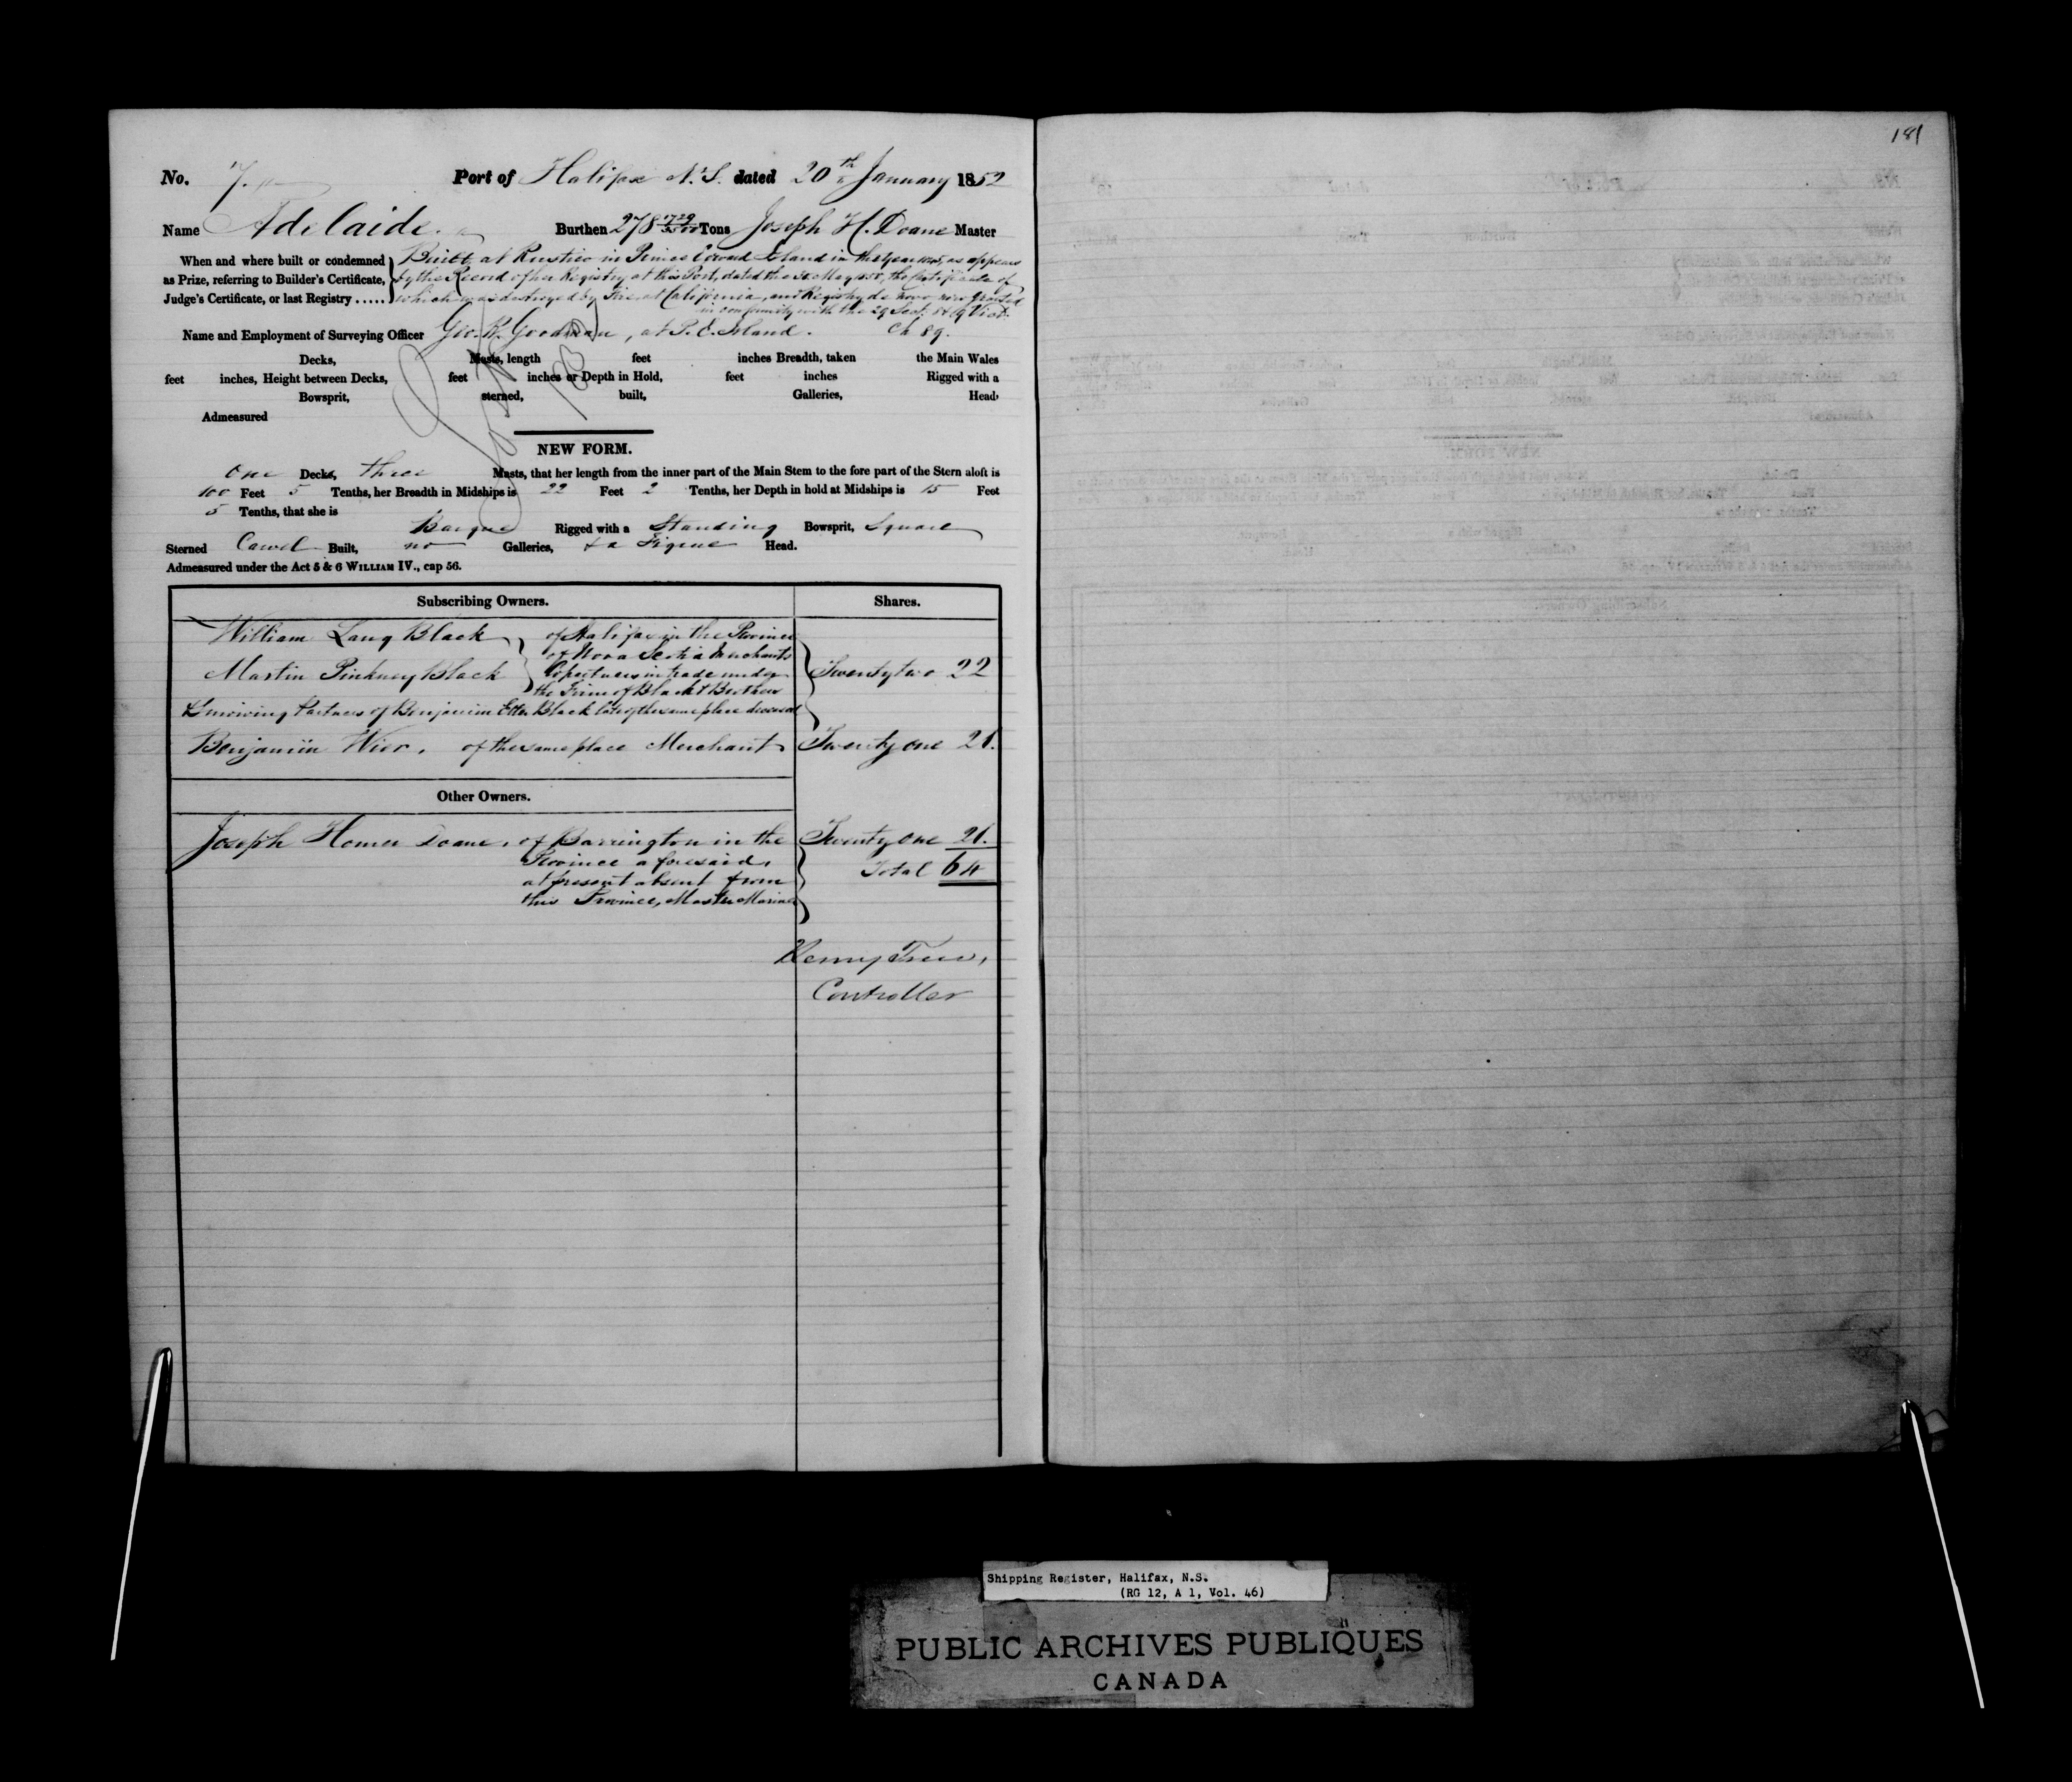 181
No. 7. Port of Halifax N.S. dated 20th January 1852
Name Adelaide. Burthen 278 1729/3500 Tons Joseph H. Doane Master
When and where built or condemned as Prize, referring to Builder's Certificate, Judge's Certificate, or last Registry .....
Built at Rustico in Prince Edward Island in the Year as appears
by the Record of her Registry at this Port, dated the May the Certificate of
which was destroyed by Fire at California, and Registry de novo now granted
in conformity with the 29 Sect. 8 & 9 Vict.
Name and Employment of Surveying Officer Geo. R. Goodman, at P. E. Island. Ch 89.
Decks, Masts, length feet inches Breadth, taken the Main Wales
feet inches, Height between Decks, feet inches or Depth in Hold, feet inches Rigged with a
Bowsprit, sterned, built, Galleries, Head,
Admeasured
NEW FORM.
One Decks, three Masts, that her length from the inner part of the Main Stem to the fore part of the Stern aloft is
100 Feet 5 Tenths, her Breadth in Midships is 22 Feet 2 Tenths, her Depth in hold at Midships is 15 Feet
5 Tenths, that she is
Barque Rigged with a Standing Bowsprit, Square
Sterned Carvel Built, no Galleries, & a Figure Head.
Admeasured under the Act 5 & 6 WILLIAM IV., cap 56.
Subscribing Owners. Shares.
William Lang Black of Halifax in the Province
of Nova Scotia Merchants
Martin Pinkney Black Copartners in trade under Twenty two 22
the Firm of Black & Brothers
& Surviving Partners of Benjamin Etter Black late of the same place deceased
Benjamin Wier, of the same place Merchant Twenty one 21.
Other Owners.
Joseph Homer Doane, of Barrington in the Twenty one 21.
Province aforesaid, Total 64
at present absent from
this Province, Master Mariner
Henry Trew,
Controller
Shipping Register, Halifax, N.S.
(RG 12, A 1, Vol. 46)
PUBLIC ARCHIVES PUBLIQUES
CANADA